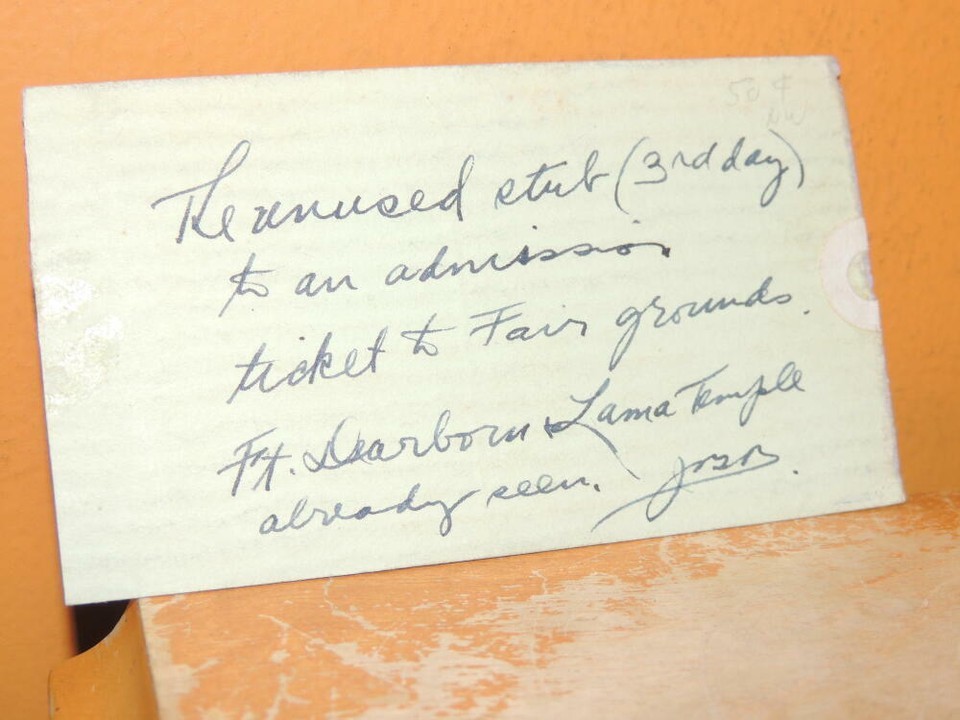 50 ¢
The unused stub (3rd day)
to an admission
ticket to Fair grounds.
Ft. Dearborn & Lama Temple
already seen.